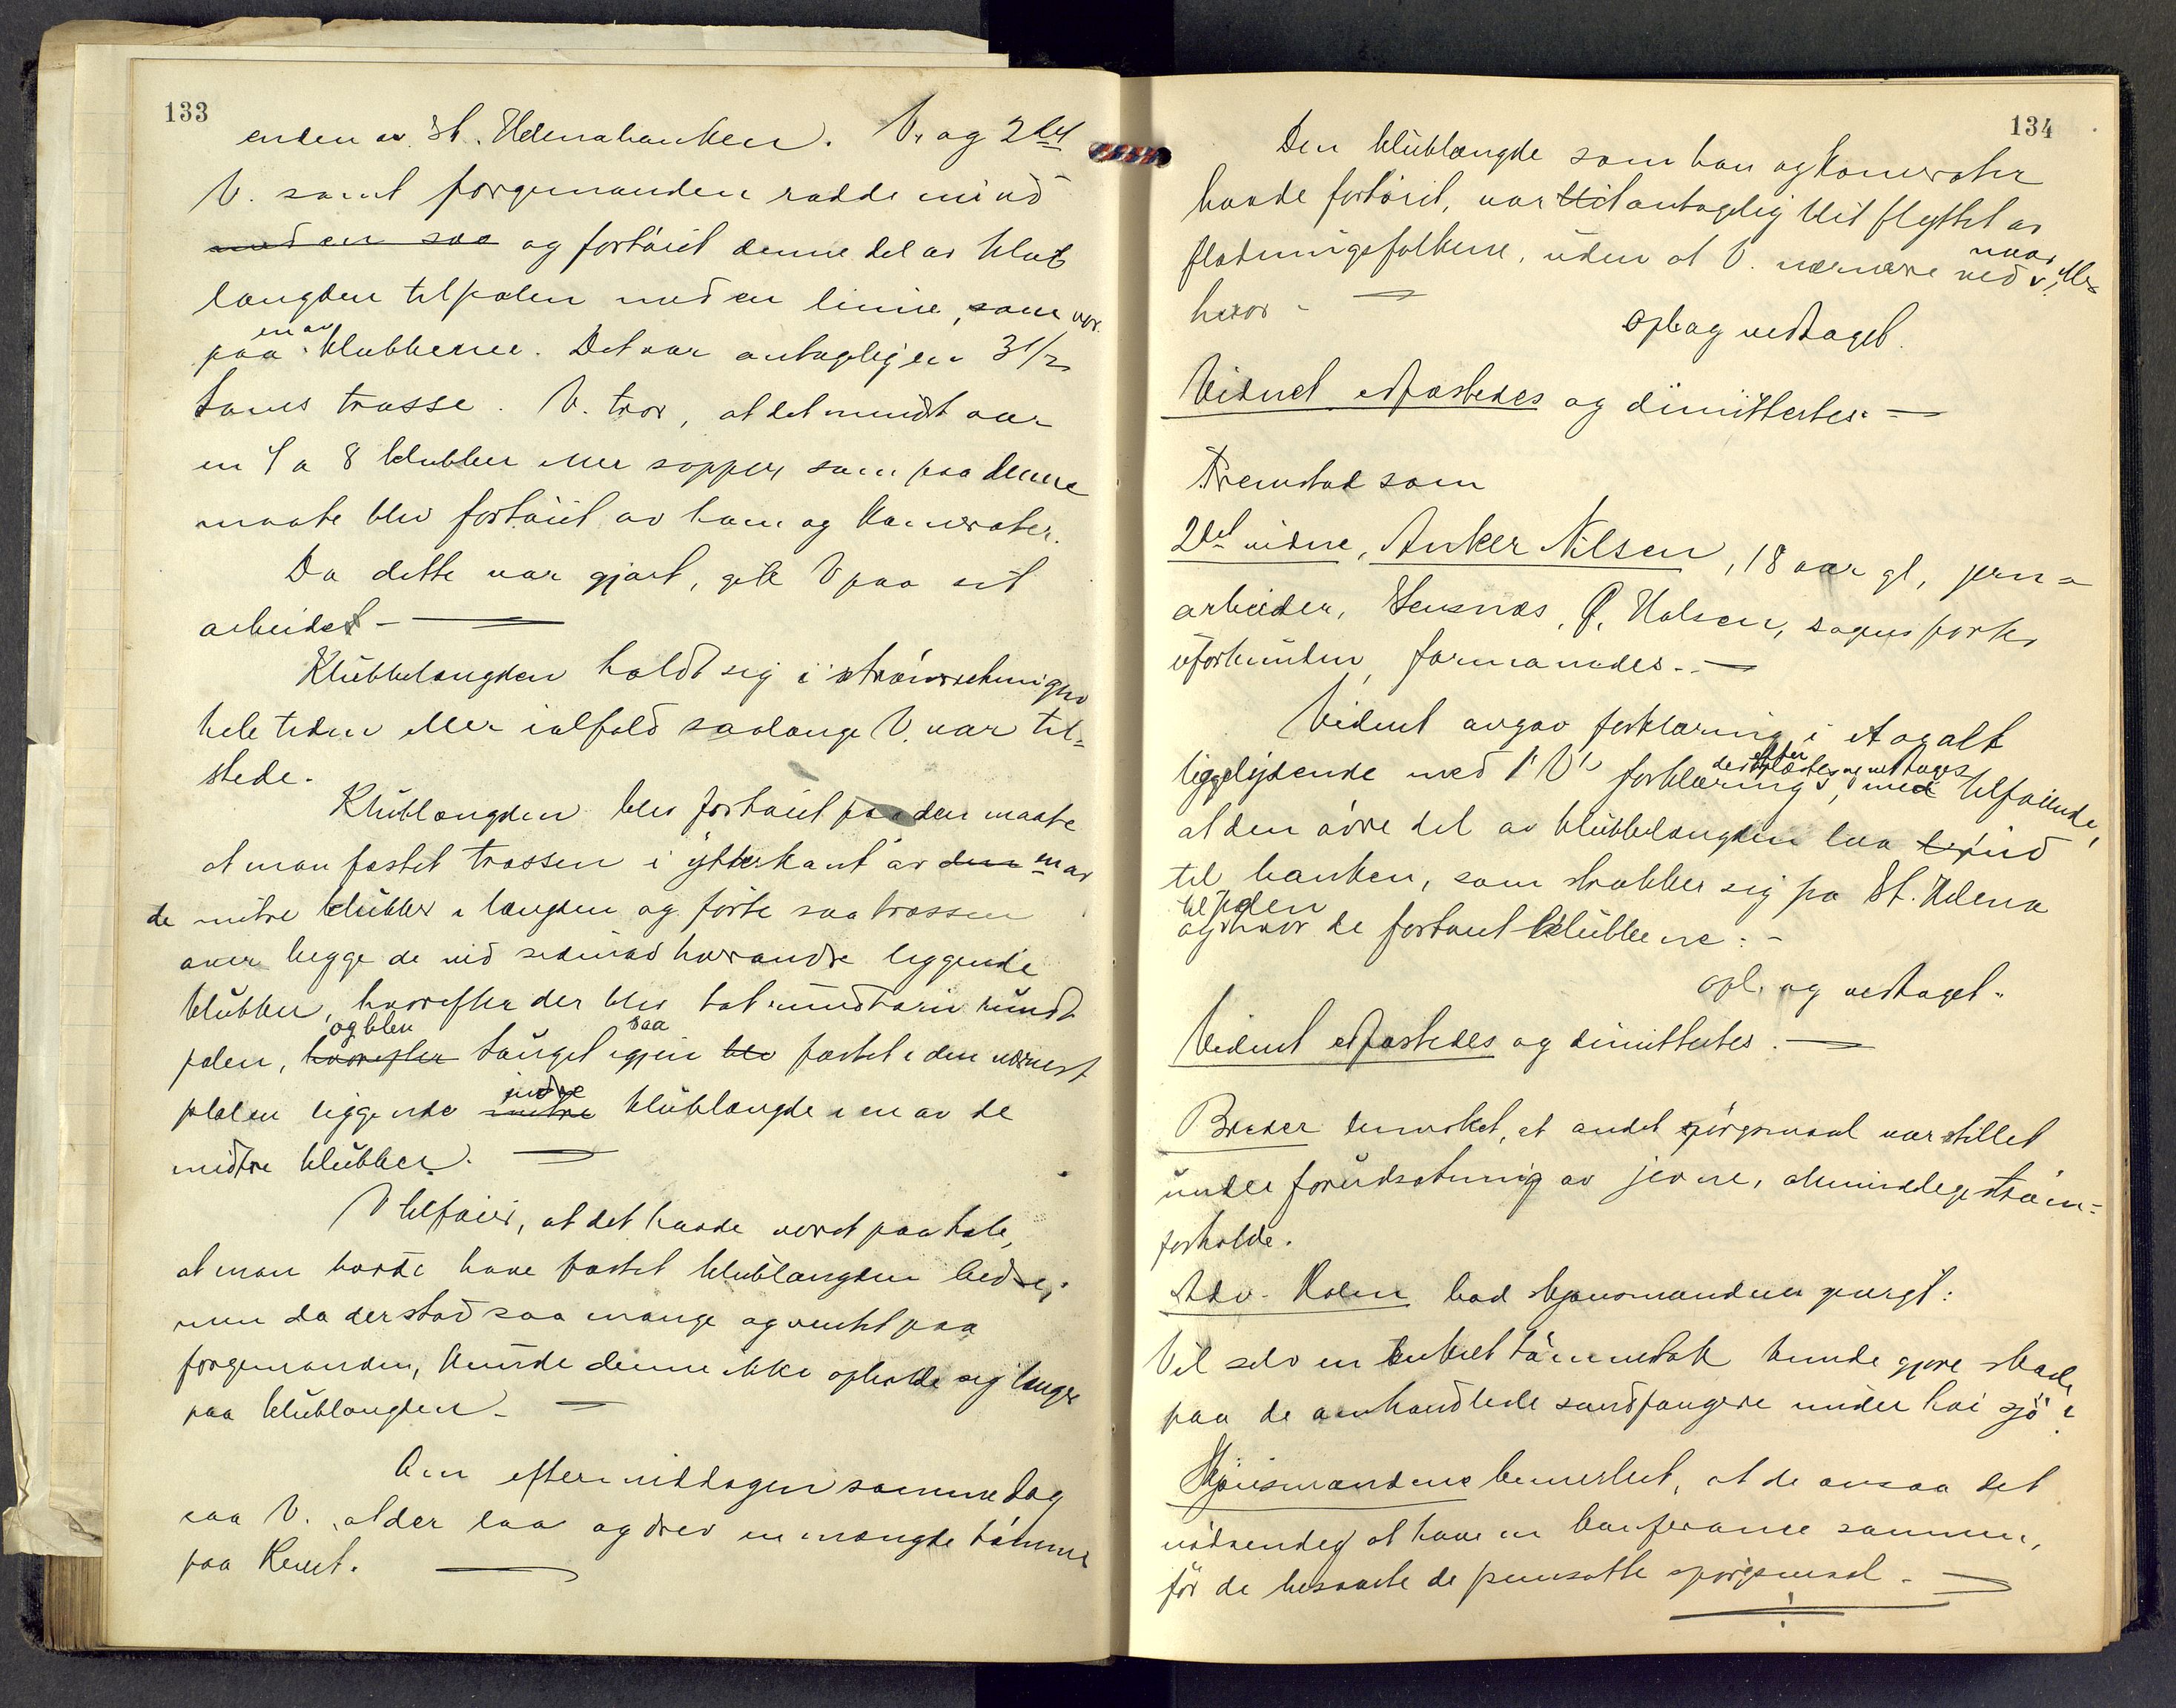 133
enden av St. Helenabanken. V. og 2det
V. samt forgemanden rodde inind
med en saa og fortöiet denne del av klub
længden til pælen med en linie, som var
en av
paa klubberne. Det var antagelig en 3 1/2
toms trosse. V. tror, at det mindst var
en 7 a 8 klubber eller sopper som paa denne
maate blev fortöiet av ham og kamerater.
Da dette var gjort, gik V paa sit
arbeidet -
Klubbelængden holdt sig i strømretningen
hele tiden eller ialfald saalænge V. var til=
stede.
Klublængden blev fortöiet paa den maate
at man fæstet trossen i ytterkant av den en av
de mitre klubber i længden og førte saa trossen
over begge de ved sidenav hverandre liggende
klubber, hvorefter der blev tat rundtörn rundt
og blev saa
pælen, hvorefter tauget igjen blev fæstet i den nærmest
indre
pælen liggende mitre klublængde i en av de
midtre klubber.
V tilføier, at det havde vært paatale,
at man burde have fæstet klublængden bedre,
men da der stod saa mange og ventet paa
forgemanden, kunde denne ikke opholde sig længer
paa klublængden. -
Om eftermiddagen samme dag
saa V. at der laa og drev en mængde tømmer
paa Revet.
134
Den klublængde som han og kamerater
havde fortöiet, var antagelig blit flyttet av
flødningsfolkene, uden at V. nærmere ved naar eller
hvor -
Opl og vedtaget.
Vidnet edfæstedes og dimittertes. -
Fremstod som
2det vidne, Anker Nilsen, 18 aar gl, jern=
arbeider, Sensnes, Ø. Halsen, sagens parter
uforbunden, formanedes. -
Vidnet avgav forklaring i et og alt
efter
der oplæstes og vedtoges
liggelydende med 1' V's forklaring, med tilføiende,
at den øvre del av klubbelængden laa ind
til banken, som strækker sig fra St. Helena
til pælen
og hvor de fortöiet klubbene. -
opl. og vedtaget.
Vidnet edfæstedes og dimittertes. -
Breder bemerket, at andet spörgsmaal var stillet
under forudsætning av jevne, almindelige ström=
forholde.
Adv. Holen bad skjönsmændene spurgt:
Vil selv en enkelt tömmerstok kunde gjøre skade
paa de omhandlede sandfangere under höi sjö?
Skjönsmændene bemerket, at de ansaa det
nödvendig at have en konferance sammen,
för de besvarte de fremsatte spörgsmaal. -